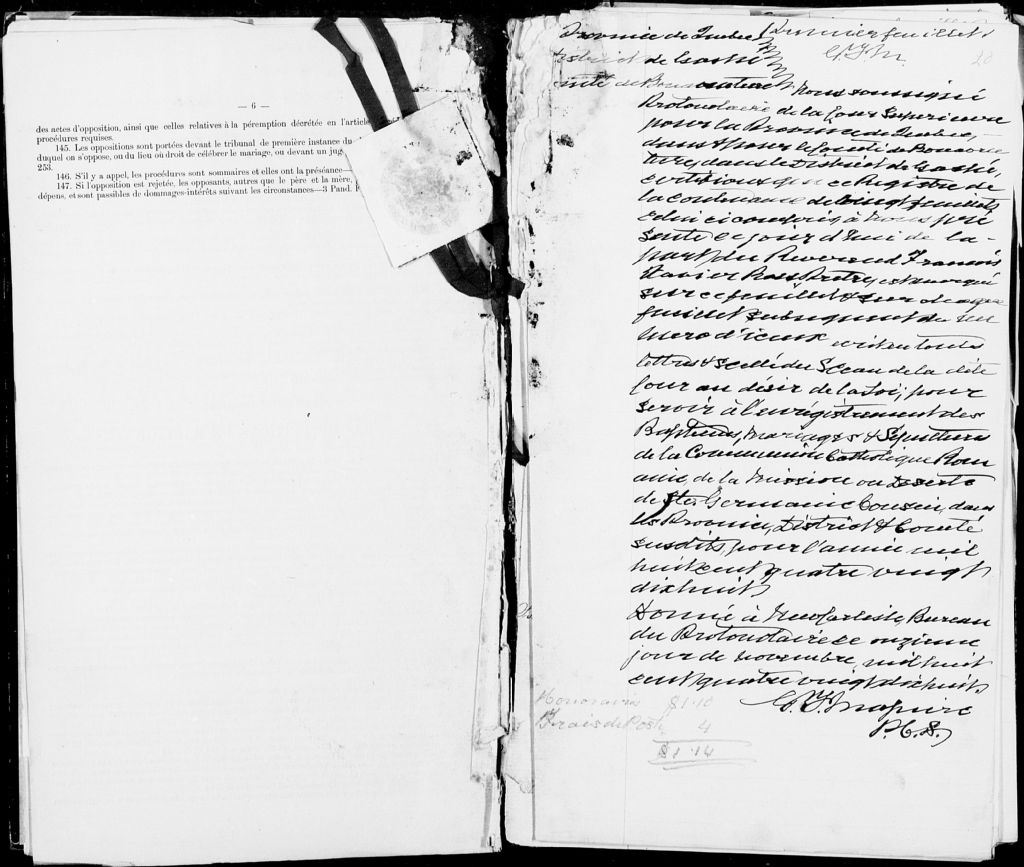 — 6 —
des actes d'opposition, ainsi que celles relatives à la péremption décrétée en l'article
procédures requises.
145. Les oppositions sont portées devant le tribunal de première instance du
duquel on s'oppose, ou du lieu où droit de célébrer le mariage, ou devant un jug
253.
146. S'il y a appel, les procédures sont sommaires et elles ont la préséance—
147. Si l'opposition est rejetée, les opposants, autres que le père et la mère,
dépens, et sont passibles de dommages-intérêts suivant les circonstances—3 Pand.
Province de Quebec Premier feuillet
District de Gaspé
Comté de Bonaventure Nous soussigné
Protonotaire de la Cour Superieure
pour la Province de Quebec,
dans & pour le Comté de Bonaven
ture, dans le District de Gaspé,
certifions que ce Registre de
la contenance de vingt feuillets
à Nous pré
senté ce jour d'hui de la
part du Reverend François
Xavier Ross Ptre, est marqué
sur ce feuillet & sur chaque
feuillet subsequent du nu
mero d'iceux écrit en toutes
lettres & scellé du Sceau de la dite
Cour au désir de la Loi, pour
servir à l'enrégistrement des
Baptêmes, Mariages & Sepultures
de la Communion Catholique Rom
aine, de la Mission ou Desserte
de Ste. Germaine Cousin, dans
les Province, District & Comté
susdits, pour l'année mil
huit cent quatre vingt
dix huit
Donné à New Carlisle, Bureau
du Protonotaire ce onzieme
jour de novembre, mil huit
cent quatre vingt dix huit
Honoraire $1.10
Frais de Poste 4
$1.14
P.C.S.